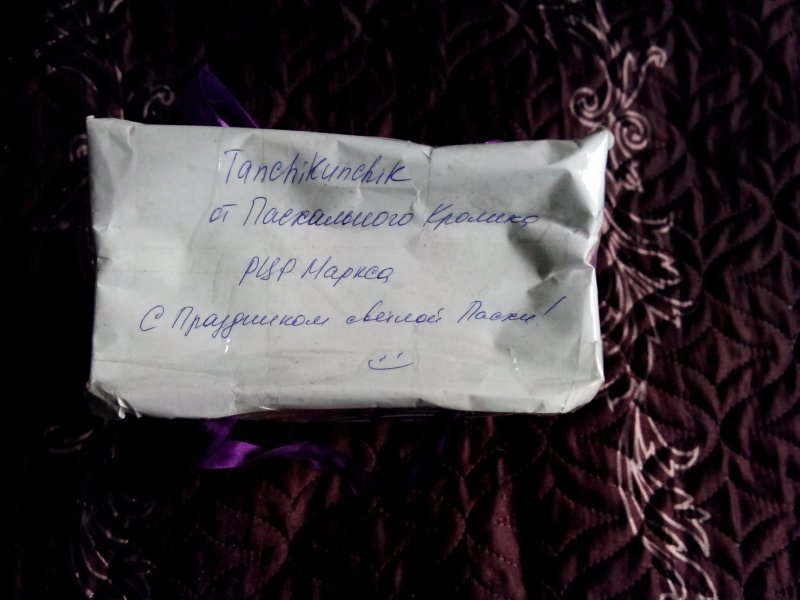 Tanchikunchik
от Пасхального Кролика
РЦР Маркса
С Праздником светлой Пасхи!